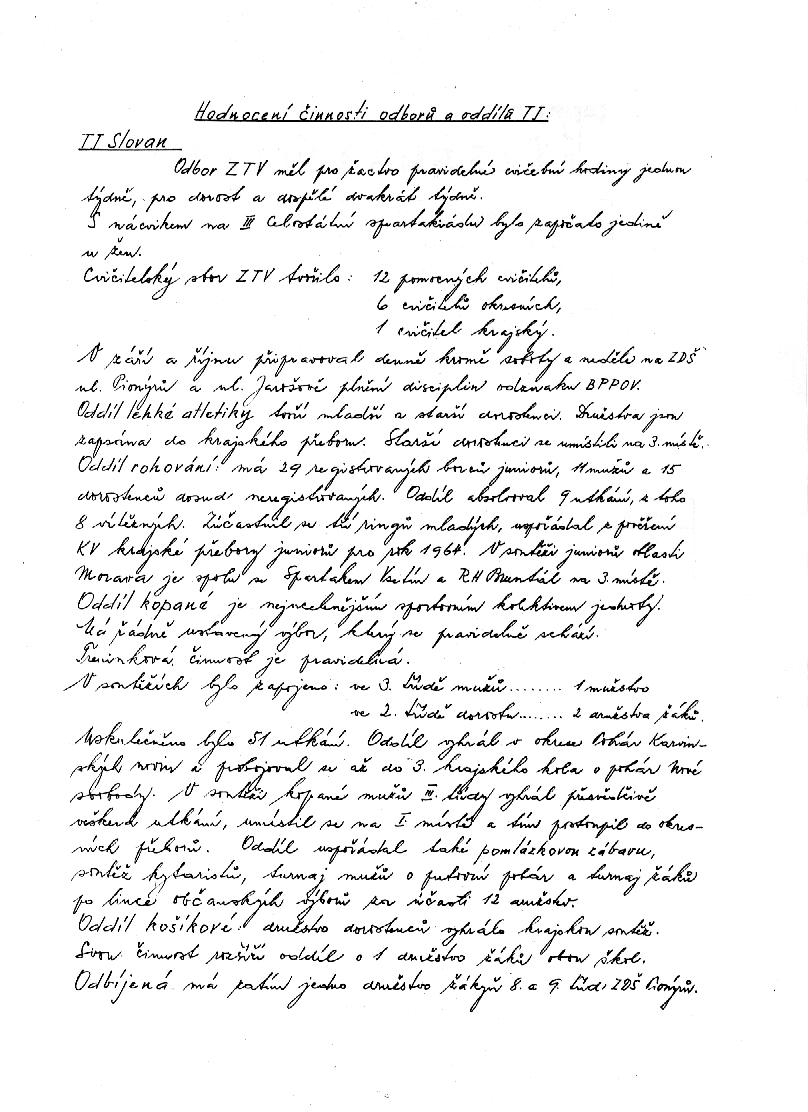 Hodnocení činnosti odborů a oddílů TJ:
TJ Slovan
Odbor ZTV měl pro žactvo pravidelné cvičební hodiny jednou
týdně, pro dorost a dospělé dvakrát týdně.
S nácvikem na III celostátní spartakiádu bylo započato jedině
u žen.
Cvičitelský sbor ZTV tvořilo: 12 pomocných cvičitelů,
6 cvičitelů okresních,
1 cvičitel krajský.
V září a říjnu připravoval denně kromě soboty a neděle na ZDŠ
ul. Pionýrů a ul. Jarošově plnění disciplin odznaku BPPOV.
Oddíl lehké atletiky tvoří mladší a starší dorostenci. Družstva jsou
zapsána do krajského přeboru. Starší dorostenci se umístili na 3. místě.
Oddíl rohování: má 29 registrovaných borců juniorů, 11 mužů a 15
dorostenců dosud neregistrovaných. Oddíl absolvoval 9 utkání, z toho
8 vítězných. Zúčastnil se tří ringů mladých, uspořádal z pověření
KV krajské přebory juniorů pro rok 1964. V soutěži juniorů oblasti
Morava je spolu se Spartakem Vsetín a RH Bruntál na 3. místě.
Oddíl kopané je nejpočetnějším sportovním kolektivem jednoty.
Má řádně ustavený výbor, který se pravidelně schází.
Tréninková činnost je pravidelná.
V soutěžích bylo zapojeno: ve 3. třídě mužů........ 1 mužstvo
ve 2. třídě dorostu....... 2 družstva žáků.
Uskutečněno bylo 51 utkání. Oddíl vyhrál v okrese Pohár Karvin-
ských novin a probojoval se až do 3. krajského kola o pohár Nové
svobody. V soutěži kopané mužů III. třídy vyhrál přesvědčivě
veškerá utkání, umístil se na I. místě a tím postoupil do okres-
ních přeborů. Oddíl uspořádal také pomlázkovou zábavu,
soutěž kytaristů, turnaj mužů o putovní pohár a turnaj žáků
po lince občanských výborů za účasti 12 družstev.
Oddíl košíkové: družstvo dorostenců vyhrálo krajskou soutěž.
Svou činnost rozšíří oddíl o 1 družstvo žáků obou škol.
Odbíjená má zatím jedno družstvo žákyň 8. a 9. tříd ZDŠ Pionýrů.